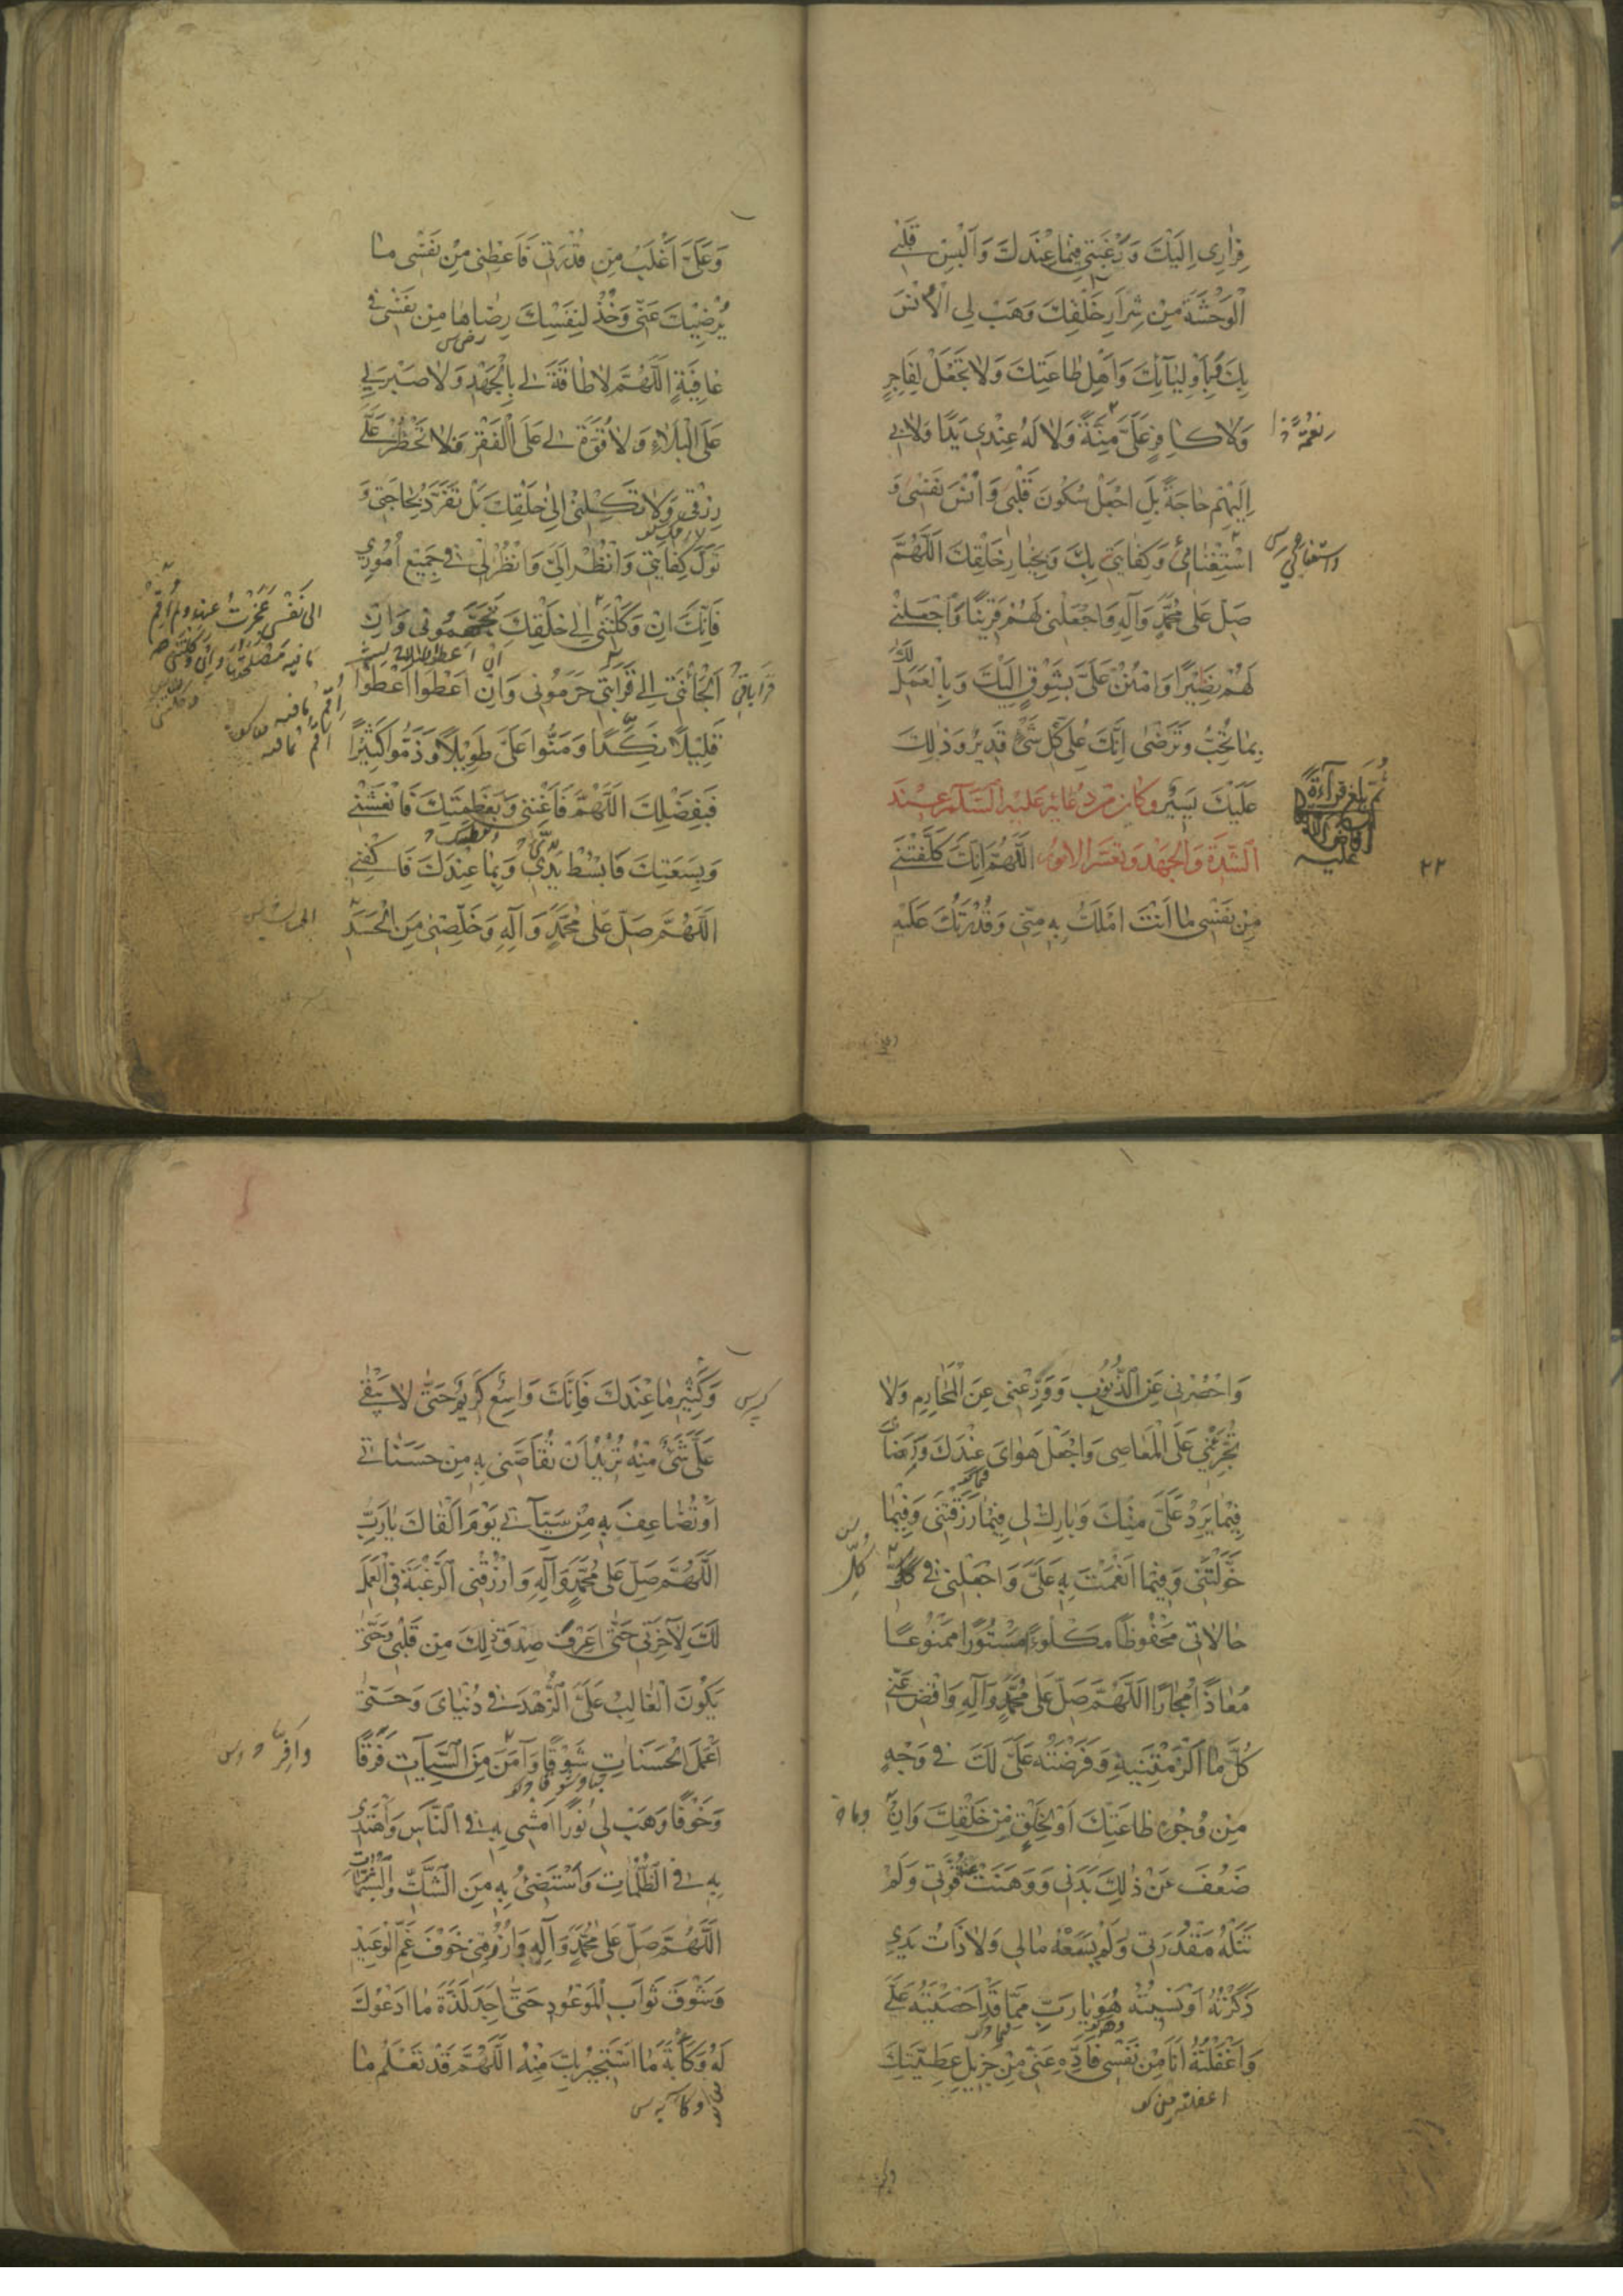 فِرَارِي اِلَيْكَ وَرَغْبَتِي فِيمَا عِنْدَكَ وَاَلْبِسْ قَلْبِي
الْوَحْشَةَ مِنْ شِرَارِ خَلْقِكَ وَهَبْ لِي الْاُنْسَ
بِكَ وَبِاَوْلِيَآئِكَ وَاَهْلِ طَاعَتِكَ وَلَا تَجْعَلْ لِفَاجِرٍ
وَلَا كَافِرٍ عَلَيَّ مِنَّةً وَلَا لَهُ عِنْدِي يَدًا وَلَا بِي
اِلَيْهِمْ حَاجَةً بَلِ اجْعَلْ سُكُونَ قَلْبِي وَاُنْسَ نَفْسِي وَ
اسْتِغْنَائِي وَكِفَايَتِي بِكَ وَبِخِيَارِ خَلْقِكَ اَللّٰهُمَّ
صَلِّ عَلَى مُحَمَّدٍ وَآلِهِ وَاجْعَلْنِي لَهُمْ قَرِينًا وَاجْعَلْنِي
لَهُمْ نَصِيرًا وَامْنُنْ عَلَيَّ بِشَوْقٍ اِلَيْكَ وَبِالْعَمَلِ لَكَ
بِمَا تُحِبُّ وَتَرْضَى اِنَّكَ عَلَى كُلِّ شَيْءٍ قَدِيرٌ وَذٰلِكَ
عَلَيْكَ يَسِيرٌ وَكَانَ مِنْ دُعَائِهِ عَلَيْهِ السَّلَامُ عِنْدَ
الشِّدَّةِ وَالْجَهْدِ وَتَعَسُّرِ الْاُمُورِ اَللّٰهُمَّ اِنَّكَ كَلَّفْتَنِي
مِنْ نَفْسِي مَا اَنْتَ اَمْلَكُ بِهِ مِنِّي وَقُدْرَتُكَ عَلَيْهِ
نِعْمَةً
ثُمَّ بَلَغَ قِرَاءَةً
عليه
٢٢
وَعَلَيَّ اَغْلَبُ مِنْ قُدْرَتِي فَاَعْطِنِي مِنْ نَفْسِي مَا
يُرْضِيكَ عَنِّي وَخُذْ لِنَفْسِكَ رِضَاهَا مِنْ نَفْسِي فِي
عَافِيَةٍ اَللّٰهُمَّ لَا طَاقَةَ لِي بِالْجَهْدِ وَلَا صَبْرَ لِي
عَلَى الْبَلَاءِ وَلَا قُوَّةَ لِي عَلَى الْفَقْرِ فَلَا تَحْظُرْ عَلَيَّ
رِزْقِي وَلَا تَكِلْنِي اِلَى خَلْقِكَ بَلْ تَفَرَّدْ بِحَاجَتِي وَ
تَوَلَّ كِفَايَتِي وَانْظُرْ اِلَيَّ وَانْظُرْ لِي فِي جَمِيعِ اُمُورِي
فَاِنَّكَ اِنْ وَكَلْتَنِي اِلَى خَلْقِكَ تَجَهَّمُونِي وَاِنْ
اَلْجَأْتَنِي اِلَى قَرَابَتِي حَرَمُونِي وَاِنْ اَعْطَوْا اَعْطَوْا
قَلِيلًا نَكِدًا وَمَنُّوا عَلَيَّ طَوِيلًا وَذَمُّوا كَثِيرًا
فَبِفَضْلِكَ اَللّٰهُمَّ فَاَغْنِنِي وَبِعَظَمَتِكَ فَانْعَشْنِي
وَبِسَعَتِكَ فَابْسُطْ يَدِي وَبِمَا عِنْدَكَ فَاكْفِنِي
اَللّٰهُمَّ صَلِّ عَلَى مُحَمَّدٍ وَآلِهِ وَخَلِّصْنِي مِنَ الْحَسَدِ
الى نَفْسِي عَجَزْتُ عنها ولم اُقِمْ
ما فيه مَصْلَحَتُهَا وَاِنْ وَكَلْتَنِي
وَاحْصُرْنِي عَنِ الذُّنُوبِ وَوَرِّعْنِي عَنِ الْمَحَارِمِ وَلَا
تُجَرِّئْنِي عَلَى الْمَعَاصِي وَاجْعَلْ هَوَايَ عِنْدَكَ وَرِضَايَ
فِيمَا يَرِدُ عَلَيَّ مِنْكَ وَبَارِكْ لِي فِيمَا رَزَقْتَنِي وَفِيمَا
خَوَّلْتَنِي وَفِيمَا اَنْعَمْتَ بِهِ عَلَيَّ وَاجْعَلْنِي فِي كُلِّ
حَالَاتِي مَحْفُوظًا مَكْلُوءًا مَسْتُورًا مَمْنُوعًا
مُعَاذًا مُجَارًا اَللّٰهُمَّ صَلِّ عَلَى مُحَمَّدٍ وَآلِهِ وَاقْضِ عَنِّي
كُلَّ مَا اَلْزَمْتَنِيهِ وَفَرَضْتَهُ عَلَيَّ لَكَ فِي وَجْهٍ
مِنْ وُجُوهِ طَاعَتِكَ اَوْ لِخَلْقٍ مِنْ خَلْقِكَ وَاِنْ
ضَعُفَ عَنْ ذٰلِكَ بَدَنِي وَوَهَنَتْ عَنْهُ قُوَّتِي وَلَمْ
تَنَلْهُ مَقْدُرَتِي وَلَمْ يَسَعْهُ مَالِي وَلَا ذَاتُ يَدِي
ذَكَرْتُهُ اَوْ نَسِيتُهُ هُوَ يَا رَبِّ مِمَّا قَدْ اَحْصَيْتَهُ عَلَيَّ
وَاَغْفَلْتُهُ اَنَا مِنْ نَفْسِي فَاَدِّهِ عَنِّي مِنْ جَزِيلِ عَطِيَّتِكَ
كُلِّ
وَكَثِيرِ مَا عِنْدَكَ فَاِنَّكَ وَاسِعٌ كَرِيمٌ حَتَّى لَا يَبْقَى
عَلَيَّ شَيْءٌ مِنْهُ تُرِيدُ اَنْ تُقَاصَّنِي بِهِ مِنْ حَسَنَاتِي
اَوْ تُضَاعِفَ بِهِ مِنْ سَيِّآتِي يَوْمَ اَلْقَاكَ يَا رَبِّ
اَللّٰهُمَّ صَلِّ عَلَى مُحَمَّدٍ وَآلِهِ وَارْزُقْنِي الرَّغْبَةَ فِي الْعَمَلِ
لَكَ لِآخِرَتِي حَتَّى اَعْرِفَ صِدْقَ ذٰلِكَ مِنْ قَلْبِي وَحَتَّى
يَكُونَ الْغَالِبُ عَلَيَّ الزُّهْدَ فِي دُنْيَايَ وَحَتَّى
اَعْمَلَ الْحَسَنَاتِ شَوْقًا وَآمَنَ مِنَ السَّيِّآتِ فَرَقًا
وَخَوْفًا وَهَبْ لِي نُورًا اَمْشِي بِهِ فِي النَّاسِ وَاَهْتَدِي
بِهِ فِي الظُّلُمَاتِ وَاَسْتَضِيءُ بِهِ مِنَ الشَّكِّ وَالشُّبُهَاتِ
اَللّٰهُمَّ صَلِّ عَلَى مُحَمَّدٍ وَآلِهِ وَارْزُقْنِي خَوْفَ غَمِّ الْوَعِيدِ
وَشَوْقَ ثَوَابِ الْمَوْعُودِ حَتَّى اَجِدَ لَذَّةَ مَا اَدْعُوكَ
لَهُ وَكَأْبَةَ مَا اَسْتَجِيرُ بِكَ مِنْهُ اَللّٰهُمَّ قَدْ تَعْلَمُ مَا